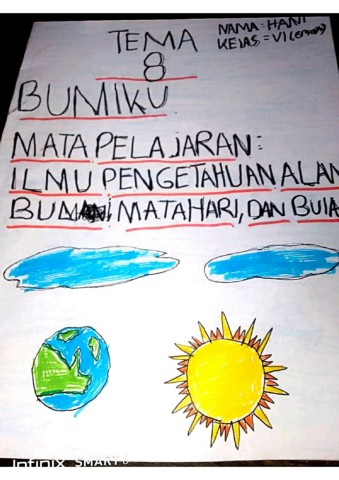 TEMA
8
NAMA = HANI
KELAS = VI
BUMIKU
MATA PELAJARAN:
ILMU PENGETAHUAN ALAM
BUMI MATAHARI, DAN BULA
infinix SMART 6